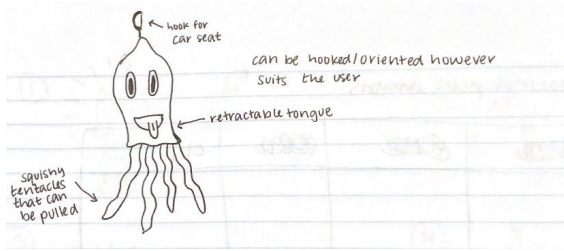 hook for
car seat
can be hooked/oriented however
suits the user
retractable tongue
squishy
tentacles
that can
be pulled